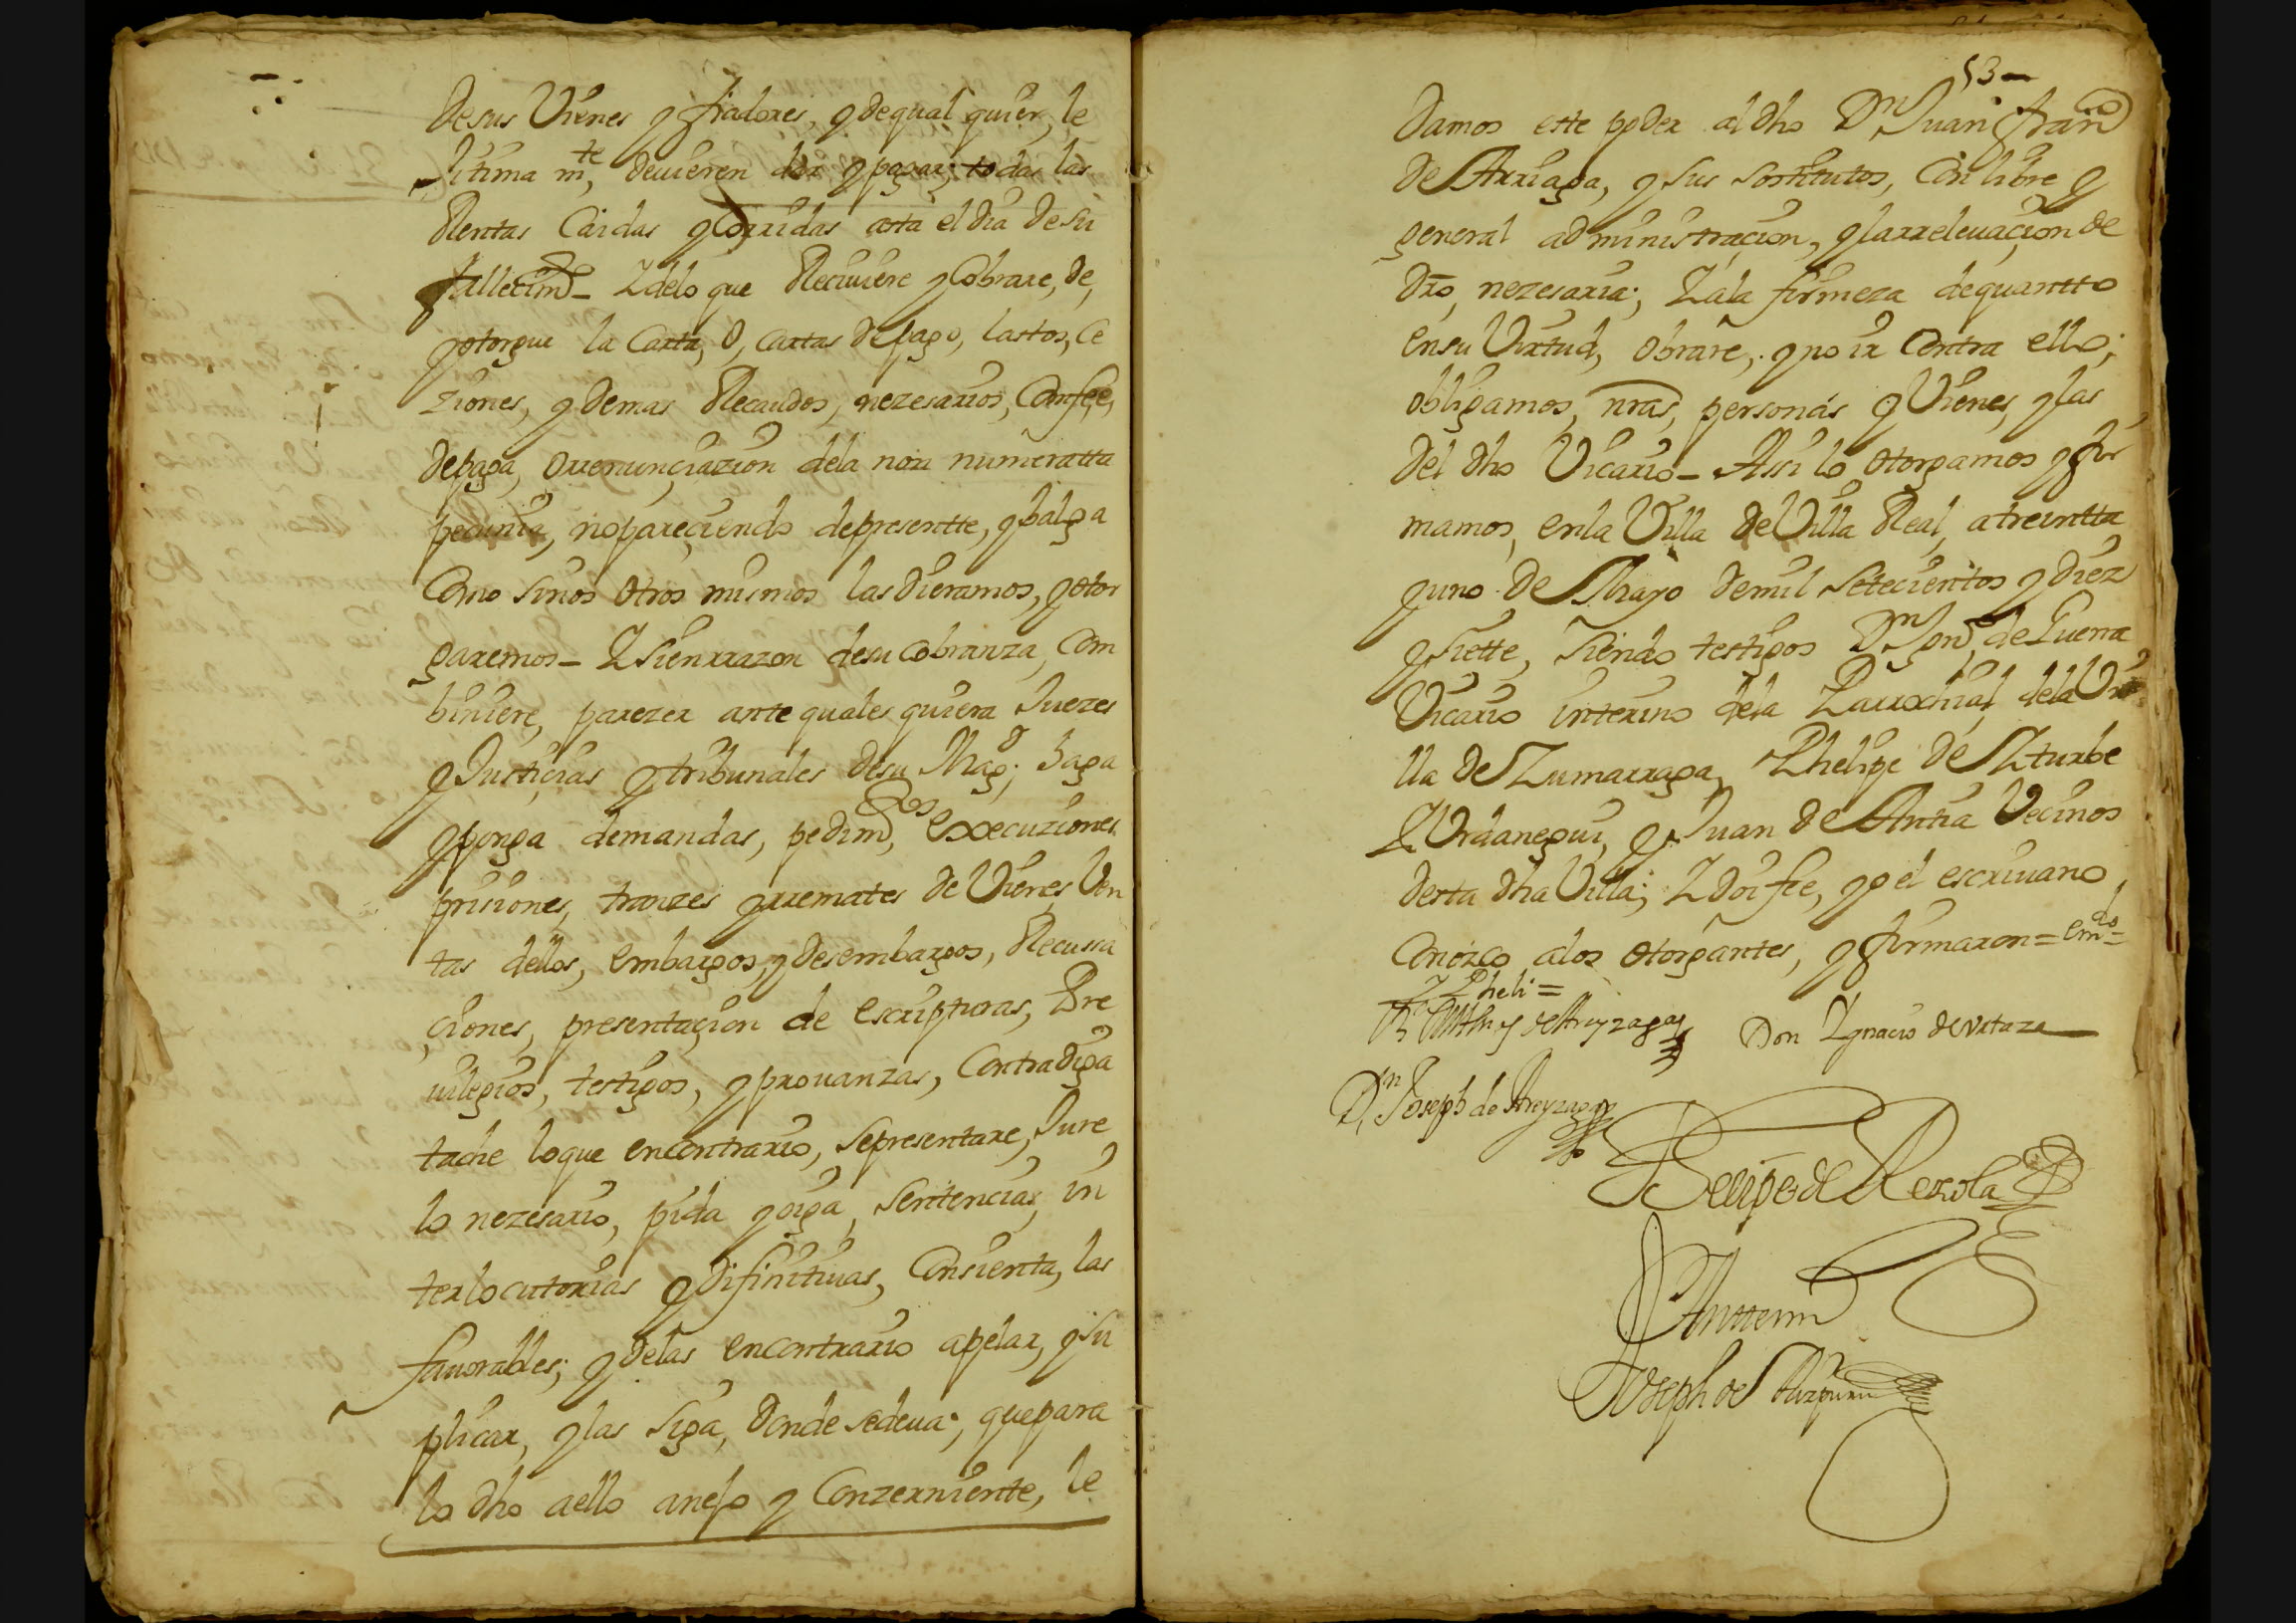 de sus Vienes y fiadores, y de qual quier, le
Jitima mte, deuieren dar y pagar; todas las
Rentas Caidas y Corridas asta el dia de su
fallecimto_ Y de lo que Reciuiere y Cobrare, de,
y otorgue la Carta, O, cartas de pago, lastos, Ce
ziones, y demas Recaudos, nezesarios, Con fee,
de paga, O renunçiazion de la non numeratta
pecunia, no pareçiendo de presentte, y balga
Como si nos Otros mismos las dieramos, y otor
garemos_ Y si en rrazon de su cobranza, Com
biniere, parezer ante quales quiera Juezes
y Justiçias y tribunales de su Magd; haga
y ponga demandas, pedimtos, execuziones
prisiones, tranzes y rremates de Vienes Ven
tas dellos, embargos, y desembargos, Recussa
çiones, presentaçion de escripturas, Pre
uilegios, testigos, y prouanzas, Contradiga
tache lo que en contrario, se presentare, Jure
lo nezesario, pida y oiga, Sentencias, in
terlocutorias y difinitiuas, Consienta, las
fauorables; y de las en contrario apelar, y su
plicar, y las siga, donde se deua; que para
lo dho a ello anejo y Conzerniente, le
53
Damos este poder al dho Dn Juan Franco
de Arriaga, y sus sostitutos, Con libre y
general administraçion, y la rreleuaçion de
dro, nezesaria; Y a la firmeza de quantto
en su Virtud, obrare, y no ir Contra ello;
obligamos, nras, personas y Vienes, y las
del dho Vicario_ Assi lo otorgamos y fir
mamos, en la Villa de Villa Real, a treintta
y uno de Mayo de mil setecientos y diez
y siette, siendo testigos Dn Ignº de Guerra
Vicario interino de la Parrochial de la Vi
lla de Zumarraga, Phelipe de Yturbe
Y Vrdanegui, y Juan de Antia Vecinos
desta dha Villa; Y doi fee, yo el escriuano,
Conozco a los otorgantes, y firmaron = emdo=
Pheli =
de Areyzaga Don Ygnacio de Vrtaza
Dn Joseph de Areyzaga
Felipe de Rezola
Antte mi
Joseph de Aizpuru